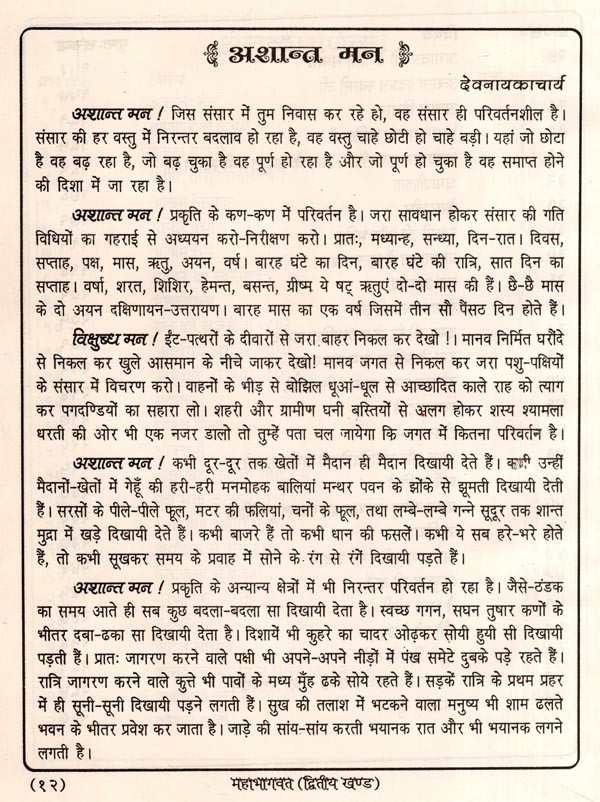 अशान्त मन
देवनायकाचार्य
अशान्त मन ! जिस संसार में तुम निवास कर रहे हो, वह संसार ही परिवर्तनशील है।
संसार की हर वस्तु में निरन्तर बदलाव हो रहा है, वह वस्तु चाहे छोटी हो चाहे बड़ी। यहां जो छोटा
है वह बढ़ रहा है, जो बढ़ चुका है वह पूर्ण हो रहा है और जो पूर्ण हो चुका है वह समाप्त होने
की दिशा में जा रहा है।
अशान्त मन ! प्रकृति के कण-कण में परिवर्तन है। जरा सावधान होकर संसार की गति
विधियों का गहराई से अध्ययन करो-निरीक्षण करो। प्रातः, मध्यान्ह, सन्ध्या, दिन-रात। दिवस,
सप्ताह, पक्ष, मास, ऋतु, अयन, वर्ष। बारह घंटे का दिन, बारह घंटे की रात्रि, सात दिन का
सप्ताह। वर्षा, शरत, शिशिर, हेमन्त, बसन्त, ग्रीष्म ये षट् ऋतुएं दो-दो मास की हैं। छै-छै मास
के दो अयन दक्षिणायन-उत्तरायण। बारह मास का एक वर्ष जिसमें तीन सौ पैंसठ दिन होते हैं।
विक्षुब्ध मन ! ईंट-पत्थरों के दीवारों से जरा बाहर निकल कर देखो !। मानव निर्मित घरौंदे
से निकल कर खुले आसमान के नीचे जाकर देखो! मानव जगत से निकल कर जरा पशु-पक्षियों
के संसार में विचरण करो। वाहनों के भीड़ से बोझिल धूआं-धूल से आच्छादित काले राह को त्याग
कर पगदण्डियों का सहारा लो। शहरी और ग्रामीण घनी बस्तियों से अलग होकर शस्य श्यामला
धरती की ओर भी एक नजर डालो तो तुम्हें पता चल जायेगा कि जगत में कितना परिवर्तन है।
अशान्त मन ! कभी दूर-दूर तक खेतों में मैदान ही मैदान दिखायी देते हैं। कभी उन्हीं
मैदानों-खेतों में गेहूँ की हरी-हरी मनमोहक बालियां मन्थर पवन के झोंके से झूमती दिखायी देती
हैं। सरसों के पीले-पीले फूल, मटर की फलियां, चनों के फूल, तथा लम्बे-लम्बे गन्ने सूदूर तक शान्त
मुद्रा में खड़े दिखायी देते हैं। कभी बाजरे हैं तो कभी धान की फसलें। कभी ये सब हरे-भरे होते
हैं, तो कभी सूखकर समय के प्रवाह में सोने के रंग से रंगें दिखायी पड़ते हैं।
अशान्त मन ! प्रकृति के अन्यान्य क्षेत्रों में भी निरन्तर परिवर्तन हो रहा है। जैसे-ठंडक
का समय आते ही सब कुछ बदला-बदला सा दिखायी देता है। स्वच्छ गगन, सघन तुषार कणों के
भीतर दबा-ढका सा दिखायी देता है। दिशायें भी कुहरे का चादर ओढ़कर सोयी हुयी सी दिखायी
पड़ती हैं। प्रातः जागरण करने वाले पक्षी भी अपने-अपने नीड़ों में पंख समेटे दुबके पड़े रहते हैं।
रात्रि जागरण करने वाले कुत्ते भी पावों के मध्य मुँह ढके सोये रहते हैं। सड़कें रात्रि के प्रथम प्रहर
में ही सूनी-सूनी दिखायी पड़ने लगती हैं। सुख की तलाश में भटकने वाला मनुष्य भी शाम ढलते
भवन के भीतर प्रवेश कर जाता है। जाड़े की सांय-सांय करती भयानक रात और भी भयानक लगने
लगती है।
(१२) महाभागवत (द्वितीय खण्ड)